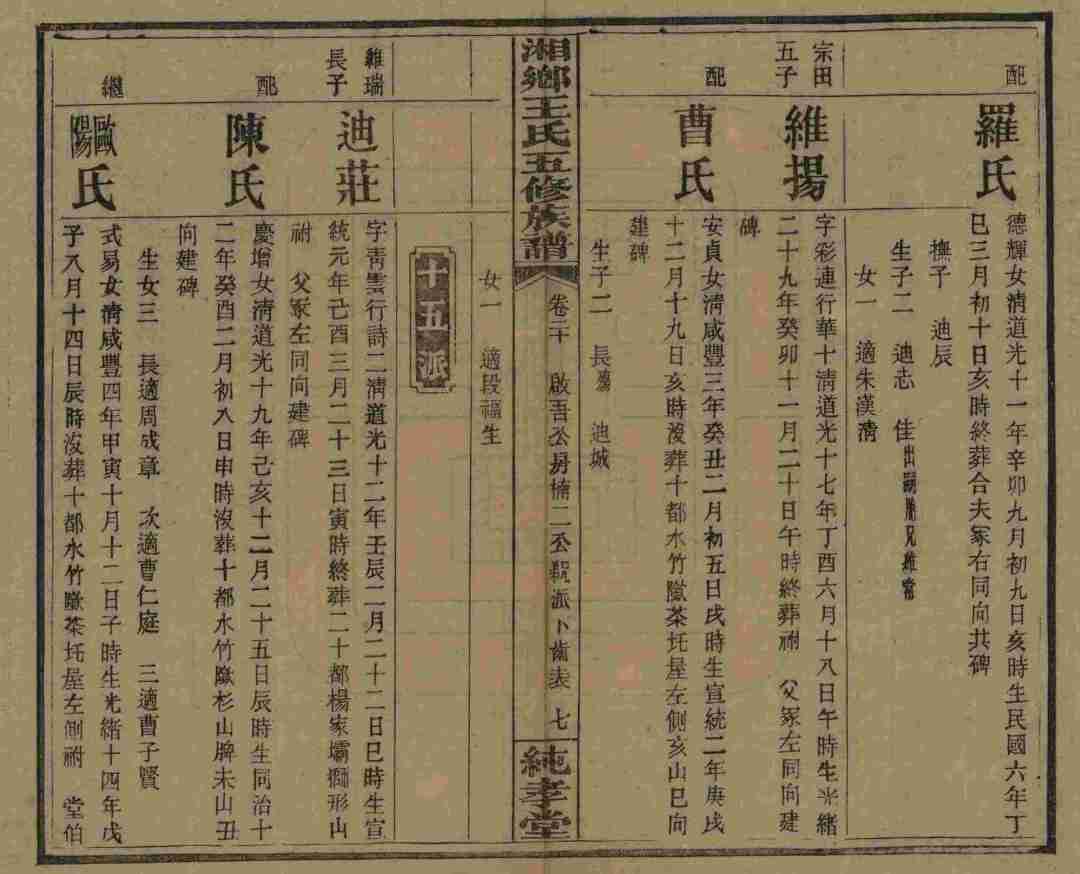 配
羅氏
德輝女淸道光十一年辛卯九月初九日亥時生民國六年丁
巳三月初十日亥時終葬合夫冢右同向共碑
撫子 迪辰
生子二 迪志 佳出嗣胞兄維常
女一 適朱漢淸
宗田
五子
維揚
字彩連行華十淸道光十七年丁酉六月十八日午時生光緖
二十九年癸卯十一月二十日午時終葬祔 父冢左同向建
碑
配
曹氏
安貞女淸咸豐三年癸丑二月初五日戌時生宣統二年庚戌
十二月十九日亥時歿葬十都水竹歘茶圫屋左側亥山巳向
建碑
生子二 長殤 迪城
湘鄉王氏五修族譜
卷二十 啟吾公房楠二公親派下齒表 七
純孝堂
女一 適段福生
十五派
維瑞
長子
迪莊
字靑雲行詩二淸道光十二年壬辰二月二十二日巳時生宣
統元年己酉三月二十三日寅時終葬二十都楊家壩獅形山
祔 父冢左同向建碑
配
陳氏
慶增女淸道光十九年己亥十二月二十五日辰時生同治十
二年癸酉二月初八日申時歿葬十都水竹歘杉山牌未山丑
向建碑
生女三 長適周成章 次適曹仁庭 三適曹子賢
繼
歐陽氏
式易女淸咸豐四年甲寅十月十二日子時生光緖十四年戊
子八月十四日辰時歿葬十都水竹歘茶圫屋左側祔 堂伯